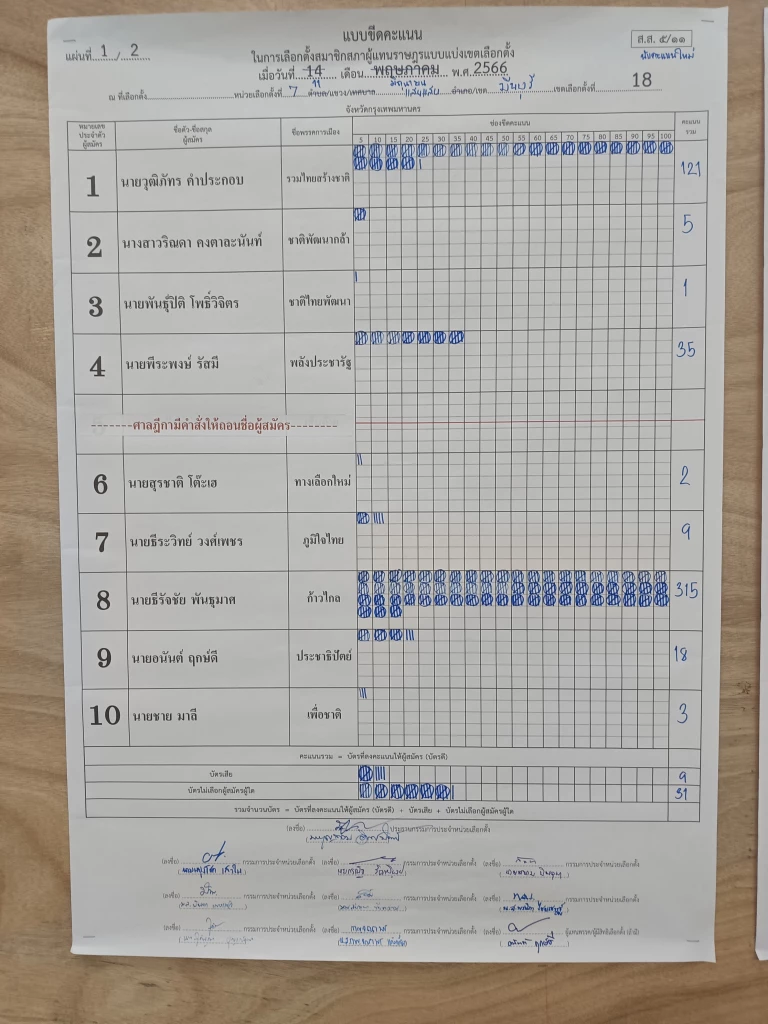 แบบขีดคะแนน
ส.ส. ๕/๑๑
แผ่นที่ 1 / 2
ในการเลือกตั้งสมาชิกสภาผู้แทนราษฎรแบบแบ่งเขตเลือกตั้ง
นับคะแนนใหม่
เมื่อวันที่ 14 เดือน พฤษภาคม พ.ศ. 2566
11 มิถุนายน
ณ ที่เลือกตั้ง หน่วยเลือกตั้งที่ 7 ตำบล/แขวง/เทศบาล แสนแสบ อำเภอ/เขต มีนบุรี เขตเลือกตั้งที่ 18
จังหวัดกรุงเทพมหานคร
หมายเลขประจำตัวผู้สมัคร ชื่อตัว-ชื่อสกุล ผู้สมัคร ชื่อพรรคการเมือง ช่องขีดคะแนน คะแนนรวม
5 10 15 20 25 30 35 40 45 50 55 60 65 70 75 80 85 90 95 100
1 นายวุฒิภัทร คำประกอบ รวมไทยสร้างชาติ 121
2 นางสาวริณดา คงตาละนันท์ ชาติพัฒนากล้า 5
3 นายพันธุ์ปิติ โพธิ์วิจิตร ชาติไทยพัฒนา 1
4 นายพีระพงษ์ รัสมี พลังประชารัฐ 35
--------ศาลฎีกามีคำสั่งให้ถอนชื่อผู้สมัคร--------
6 นายสุรชาติ โต๊ะเฮ ทางเลือกใหม่ 2
7 นายธีระวิทย์ วงศ์เพชร ภูมิใจไทย 9
8 นายธีรัจชัย พันธุมาศ ก้าวไกล 315
9 นายอนันต์ ฤกษ์ดี ประชาธิปัตย์ 18
10 นายชาย มาลี เพื่อชาติ 3
คะแนนรวม = บัตรที่ลงคะแนนให้ผู้สมัคร (บัตรดี)
บัตรเสีย 9
บัตรไม่เลือกผู้สมัครผู้ใด 31
รวมจำนวนบัตร = บัตรที่ลงคะแนนให้ผู้สมัคร (บัตรดี) + บัตรเสีย + บัตรไม่เลือกผู้สมัครผู้ใด
(ลงชื่อ) ประธานกรรมการประจำหน่วยเลือกตั้ง
(ลงชื่อ) กรรมการประจำหน่วยเลือกตั้ง (ลงชื่อ) กรรมการประจำหน่วยเลือกตั้ง (ลงชื่อ) กรรมการประจำหน่วยเลือกตั้ง
(ลงชื่อ) กรรมการประจำหน่วยเลือกตั้ง (ลงชื่อ) กรรมการประจำหน่วยเลือกตั้ง (ลงชื่อ) กรรมการประจำหน่วยเลือกตั้ง
(ลงชื่อ) กรรมการประจำหน่วยเลือกตั้ง (ลงชื่อ) กรรมการประจำหน่วยเลือกตั้ง (ลงชื่อ) ผู้แทนพรรค/ผู้มีสิทธิเลือกตั้ง (ถ้ามี)